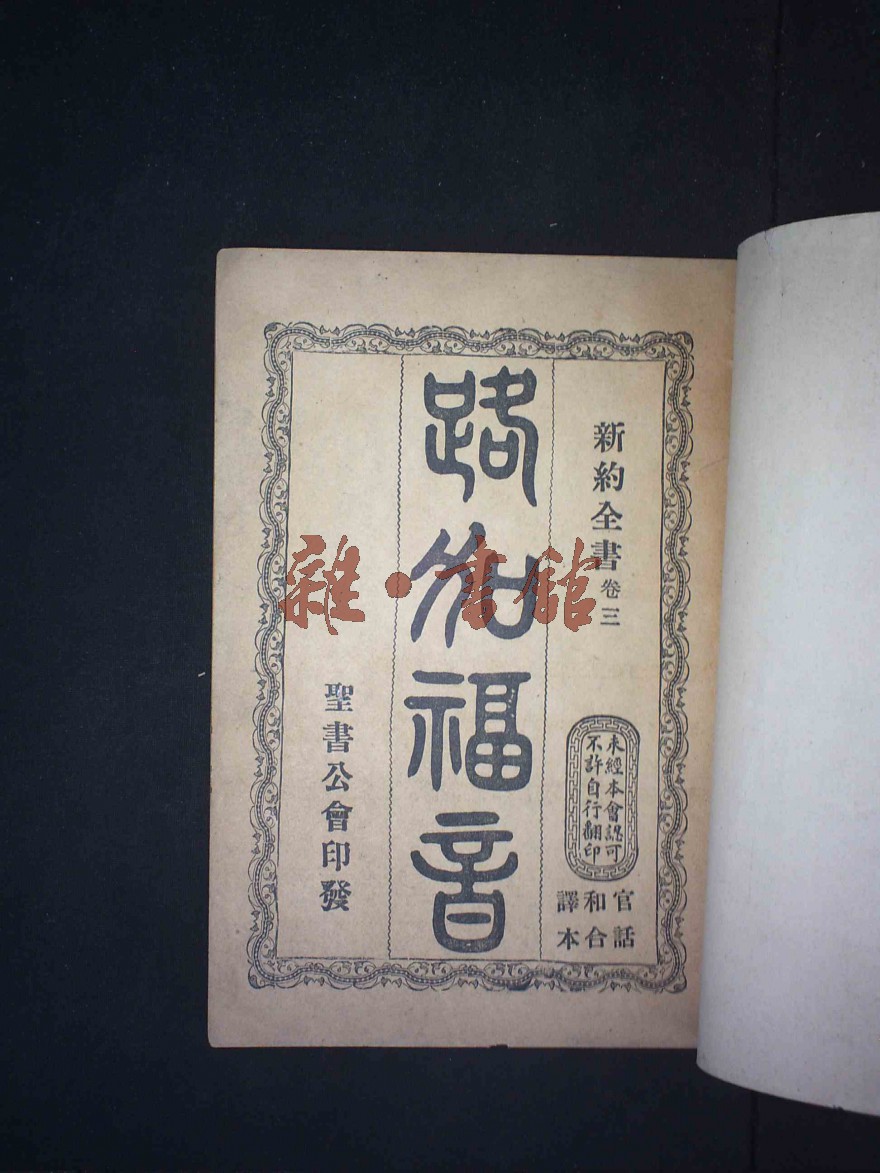 新約全書 卷三
未經本會認可
不許自行翻印
官話
和合
譯本
路加福音
聖書公會印發
雜·書館